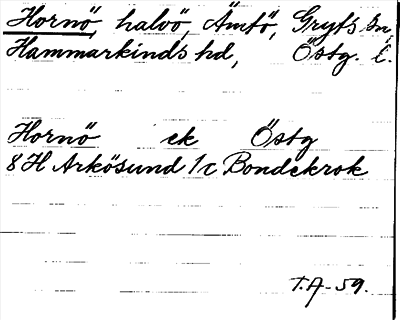 Hornö, halvö, Ämtö, Gryts sn,
Hammarkinds hd, Östg. l.
Hornö ek Östg
8 H Arkösund 1/c Bondekrok
T.A-59.